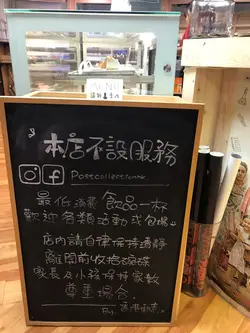 MENU
本店不設服務
Postcollection
最低消費 飲品一杯
歡迎各類活動或包場
店內請自律保持透靜
離開前收拾碗碟
家長及小孩保持家教
尊重場合
By